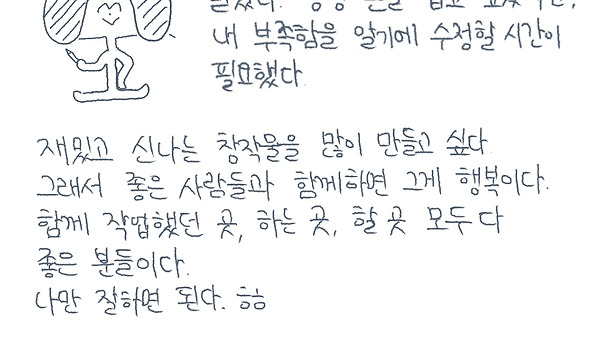 내 부족함을 알기에 수정할 시간이
필요했다.
재밌고 신나는 창작물을 많이 만들고 싶다
그래서 좋은 사람들과 함께하면 그게 행복이다.
함께 작업했던 곳, 하는 곳, 할 곳 모두 다
좋은 분들이다.
나만 잘하면 된다. 흠흠